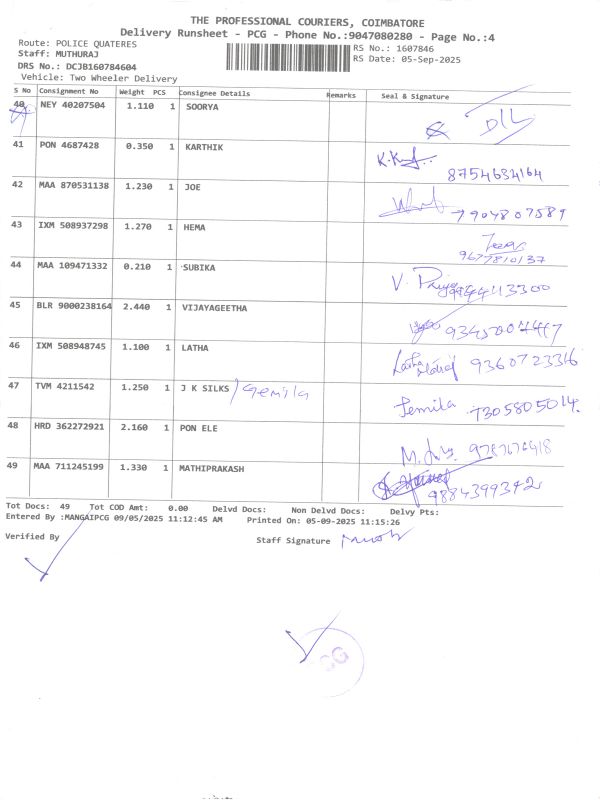 THE PROFESSIONAL COURIERS, COIMBATORE
Delivery Runsheet - PCG - Phone No.:9047080280 - Page No.:4
Route: POLICE QUATERES
Staff: MUTHURAJ
DRS No.: DCJB160784604
Vehicle: Two Wheeler Delivery
RS No.: 1607846
RS Date: 05-Sep-2025
S No Consignment No Weight PCS Consignee Details Remarks Seal & Signature
40 NEY 40207504 1.110 1 SOORYA
41 PON 4687428 0.350 1 KARTHIK
8754634164
42 MAA 870531138 1.230 1 JOE
7904807589
43 IXM 508937298 1.270 1 HEMA
9677810137
44 MAA 109471332 0.210 1 SUBIKA
45 BLR 9000238164 2.440 1 VIJAYAGEETHA
46 IXM 508948745 1.100 1 LATHA
9360723316
47 TVM 4211542 1.250 1 J K SILKS / Gemila
Jemila 7305805014.
48 HRD 362272921 2.160 1 PON ELE
49 MAA 711245199 1.330 1 MATHIPRAKASH
9884399342
Tot Docs: 49 Tot COD Amt: 0.00 Delvd Docs: Non Delvd Docs: Delvy Pts:
Entered By :MANGAIPCG 09/05/2025 11:12:45 AM Printed On: 05-09-2025 11:15:26
Verified By
Staff Signature